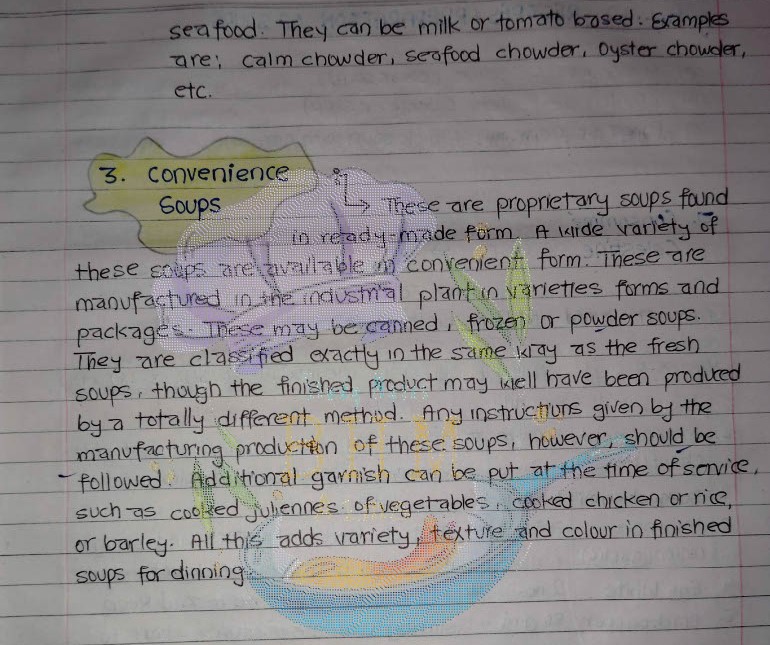 seafood. They can be milk or tomato based. Examples
are; calm chowder, seafood chowder, Oyster chowder,
etc.
3. Convenience
Soups
→ These are proprietary soups found
in ready-made form. A wide variety of
these soups are available in convenient form. These are
manufactured in the industrial plant in varieties forms and
packages. These may be canned, frozen or powder soups.
They are classified exactly in the same way as the fresh
soups, though the finished product may well have been produced
by a totally different method. Any instructions given by the
manufacturing production of these soups, however, should be
followed. Additional garnish can be put at the time of service,
such as cooked juliennes of vegetables, cooked chicken or rice,
or barley. All this adds variety, texture and colour in finished
soups for dinning.